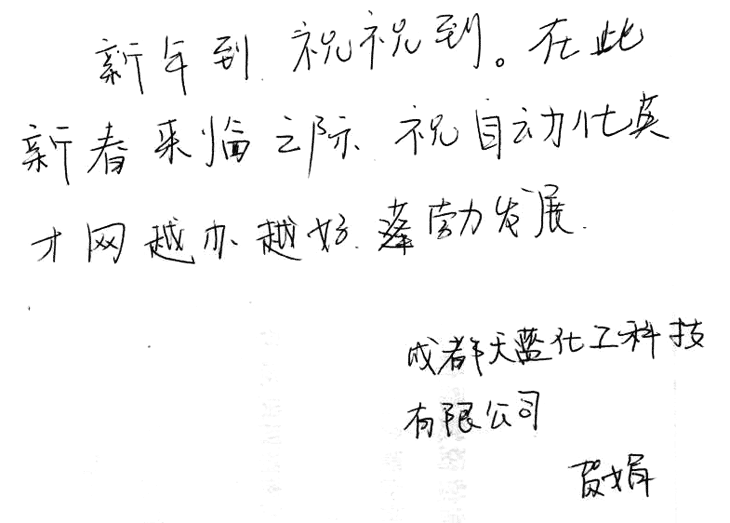 新年到 祝祝到。在此
新春来临之际 祝自动化英
才网越办越好 蓬勃发展.
成都天蓝化工科技
有限公司
贺娟